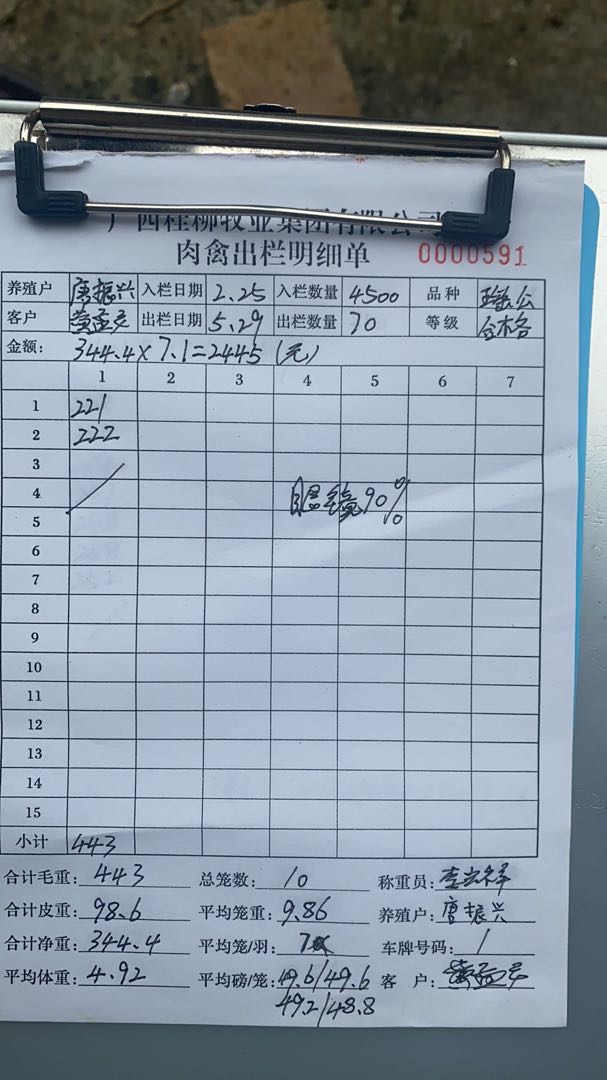 广西桂柳牧业集团有限公司
肉禽出栏明细单 0000591
养殖户 唐振兴 入栏日期 2.25 入栏数量 4500 品种
客户 出栏日期 5.29 出栏数量 70 等级 合格
金额: 344.4×7.1=2445 (元)
1 2 3 4 5 6 7
1 221
2 222
3
4 90%
5
6
7
8
9
10
11
12
13
14
15
小计 443
合计毛重: 443 总笼数: 10 称重员:
合计皮重: 98.6 平均笼重: 9.86 养殖户: 唐振兴
合计净重: 344.4 平均笼/羽: 7 车牌号码: /
平均体重: 4.92 平均磅/笼: 49.6/49.6 客 户:
49.2/48.8